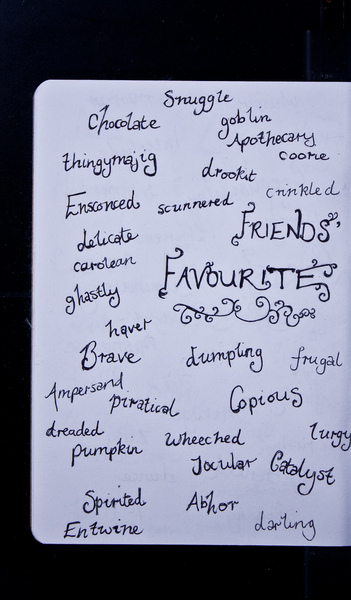 Snuggle
Chocolate
goblin
Apothecary
thingymajig
coorie
drookit
crinkled
Ensconced
scunnered
FRIENDS'
delicate
carolean
FAVOURITE
ghastly
haver
Brave
dumpling
frugal
Ampersand
piratical
Copious
dreaded
Wheeched
lurgy
pumpkin
Jocular
Catalyst
Spirited
Abhor
Entwine
darling